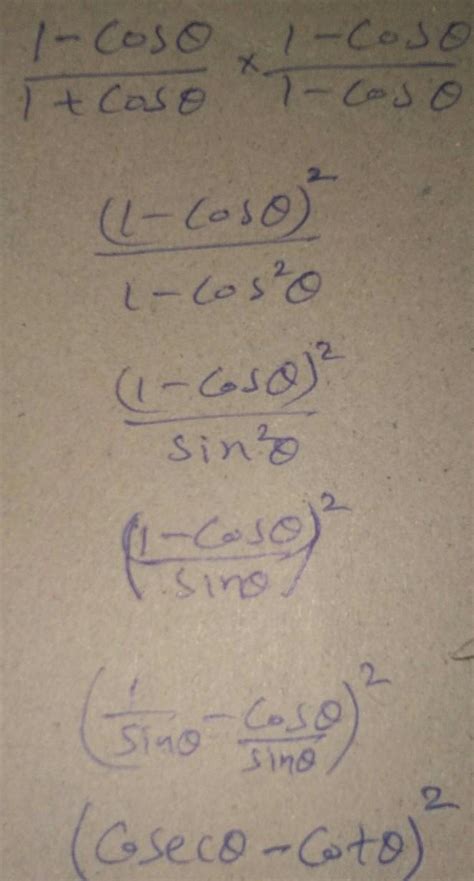 1 - Cosθ / 1 + Cosθ × 1 - Cosθ / 1 - Cosθ
(1 - Cosθ)² / 1 - Cos²θ
(1 - Cosθ)² / sin²θ
(1 - Cosθ / sinθ)²
(1 / sinθ - Cosθ / sinθ)²
(Cosecθ - Cotθ)²